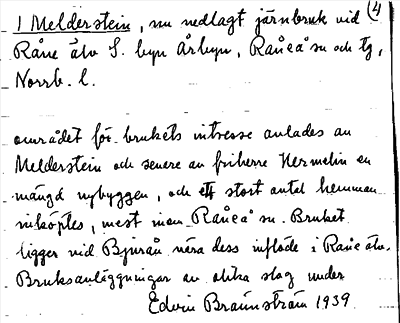 1 Melderstein, nu nedlagt järnbruk vid (4
Råne älv S. byn Årbyn, Råneå sn och tg,
Norrb. l.
området för brukets intresse anlades av
Melderstein och senere av friherre Hermelin en
mängd nybyggen, och ett stort antal hemman
inköptes, mest inom Råneå sn. Bruket
ligger vid Bjurån nära dess inflöde i Råne älv.
Bruksanläggningar av olika slag under
Edvin Brännström 1939